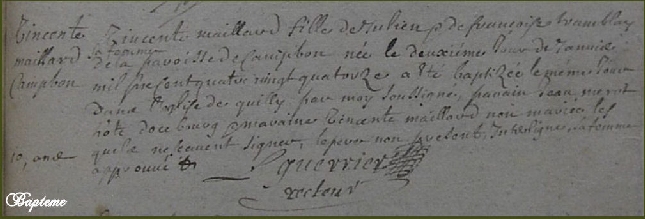 Vincente
maillard
Campbon
Vincente maillard fille de Julien et de françoise tramblay
sa femme
de la paroisse de Campbon née le deuxiéme Jour de Janvie
mil sept cent quatre vingt quatorze a été baptizée le même Jour
dans l'eglise de quilly par moy soussigné, parain Jean
de ce bourg maraine Vincente maillard non mariée les
quels ne scavent signer, le pere non present, Interligne, sa femme
approuvé
Guerrier
recteur
Bapteme